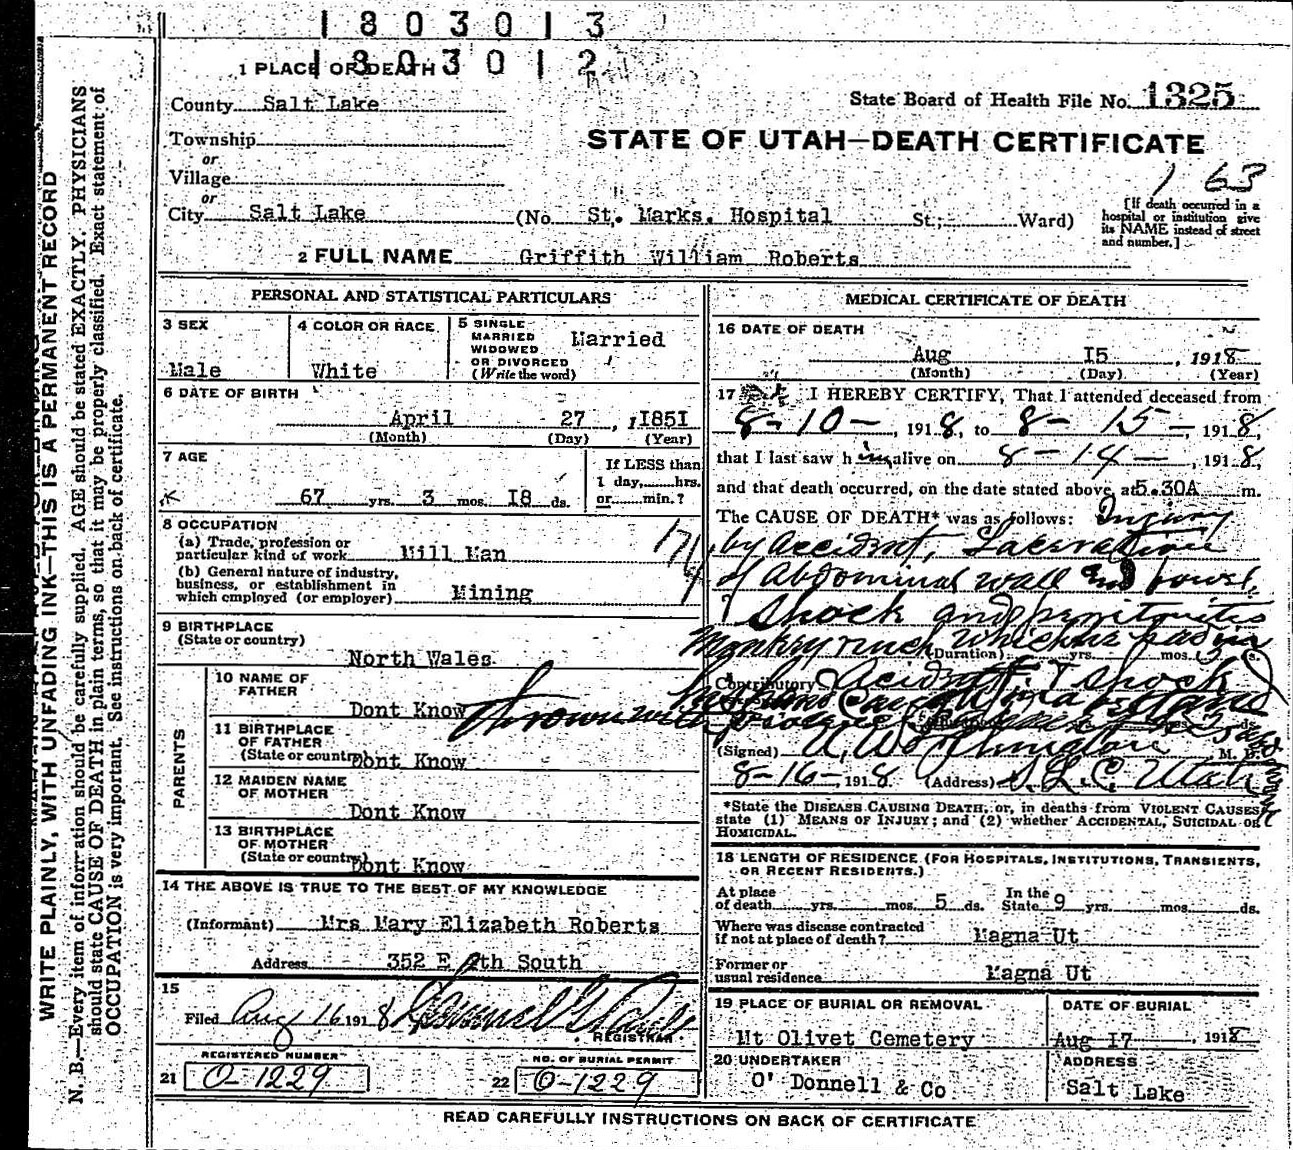 1803013
1803012
1 PLACE OF DEATH
County Salt Lake
State Board of Health File No. 1325
Township
or
Village
or
STATE OF UTAH—DEATH CERTIFICATE
1 63
City Salt Lake (No St. Marks. Hospital St; Ward)
[If death occurred in a hospital or institution give its NAME instead of street and number.]
2 FULL NAME Griffith William Roberts
PERSONAL AND STATISTICAL PARTICULARS
3 SEX
Male
4 COLOR OR RACE
White
5 SINGLE
MARRIED
WIDOWED
OR DIVORCED
(Write the word)
Married
6 DATE OF BIRTH
April 27, 1851
(Month) (Day) (Year)
7 AGE
67 yrs. 3 mos. 18 ds.
If LESS than
1 day, hrs.
or min.?
8 OCCUPATION
(a) Trade, profession or
particular kind of work Mill Man
(b) General nature of industry,
business, or establishment in
which employed (or employer) Mining
9 BIRTHPLACE
(State or country)
North Wales
PARENTS
10 NAME OF
FATHER
Dont Know
11 BIRTHPLACE
OF FATHER
(State or country) Dont Know
12 MAIDEN NAME
OF MOTHER
Dont Know
13 BIRTHPLACE
OF MOTHER
(State or country) Dont Know
14 THE ABOVE IS TRUE TO THE BEST OF MY KNOWLEDGE
(Informant) Mrs Mary Elizabeth Roberts
Address 352 E 9th South
15
Filed Aug 16 1918
REGISTRAR
REGISTERED NUMBER
21 O-1229
NO. OF BURIAL PERMIT
22 O-1229
MEDICAL CERTIFICATE OF DEATH
16 DATE OF DEATH
Aug 15, 1918
(Month) (Day) (Year)
17 I HEREBY CERTIFY, That I attended deceased from
8-10-, 1918, to 8-15-, 1918,
that I last saw him alive on 8-14-, 1918,
and that death occurred, on the date stated above, at 5.30A m.
The CAUSE OF DEATH* was as follows: Injury
by accident, Laceration
of Abdominal wall and bowel
Shock and peritonitis
Monkey wrench which he had in
(Duration) yrs. mos. ds.
Contributory Accident & Shock
thrown with violence
(Signed) M. D.
8-16-, 1918 (Address) S. L. C. Utah
*State the DISEASE CAUSING DEATH, or, in deaths from VIOLENT CAUSES
state (1) MEANS OF INJURY; and (2) whether ACCIDENTAL, SUICIDAL OR
HOMICIDAL.
18 LENGTH OF RESIDENCE (FOR HOSPITALS, INSTITUTIONS, TRANSIENTS,
OR RECENT RESIDENTS.)
At place
of death yrs. mos. 5 ds.
In the
State 9 yrs. mos. ds.
Where was disease contracted
if not at place of death? Magna Ut
Former or
usual residence Magna Ut
19 PLACE OF BURIAL OR REMOVAL
Mt Olivet Cemetery
DATE OF BURIAL
Aug 17, 1918
20 UNDERTAKER
O' Donnell & Co
ADDRESS
Salt Lake
READ CAREFULLY INSTRUCTIONS ON BACK OF CERTIFICATE
WRITE PLAINLY, WITH UNFADING INK—THIS IS A PERMANENT RECORD
N. B.—Every item of information should be carefully supplied. AGE should be stated EXACTLY. PHYSICIANS
should state CAUSE OF DEATH in plain terms, so that it may be properly classified. Exact statement of
OCCUPATION is very important. See instructions on back of certificate.